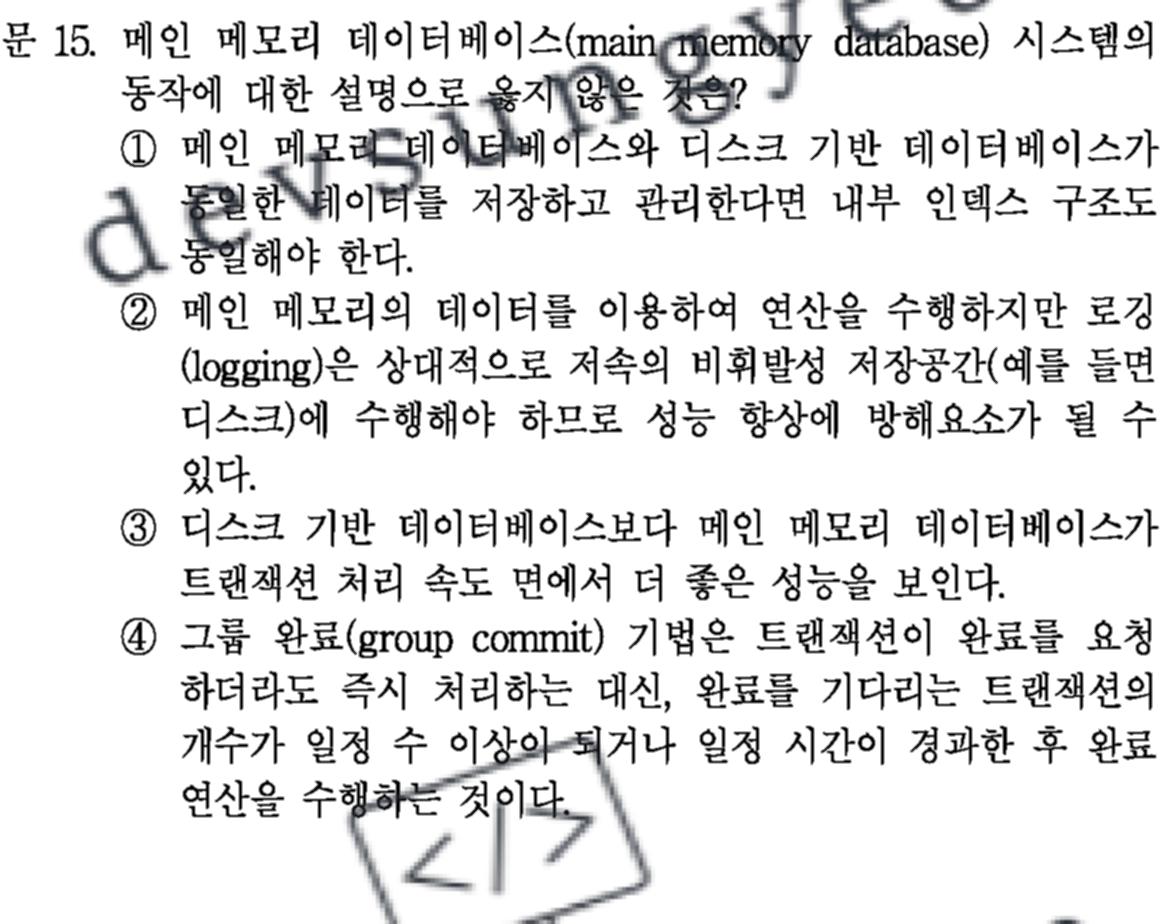 문 15. 메인 메모리 데이터베이스(main memory database) 시스템의
동작에 대한 설명으로 옳지 않은 것은?
① 메인 메모리 데이터베이스와 디스크 기반 데이터베이스가
동일한 데이터를 저장하고 관리한다면 내부 인덱스 구조도
동일해야 한다.
② 메인 메모리의 데이터를 이용하여 연산을 수행하지만 로깅
(logging)은 상대적으로 저속의 비휘발성 저장공간(예를 들면
디스크)에 수행해야 하므로 성능 향상에 방해요소가 될 수
있다.
③ 디스크 기반 데이터베이스보다 메인 메모리 데이터베이스가
트랜잭션 처리 속도 면에서 더 좋은 성능을 보인다.
④ 그룹 완료(group commit) 기법은 트랜잭션이 완료를 요청
하더라도 즉시 처리하는 대신, 완료를 기다리는 트랜잭션의
개수가 일정 수 이상이 되거나 일정 시간이 경과한 후 완료
연산을 수행하는 것이다.
devsungye
</|>